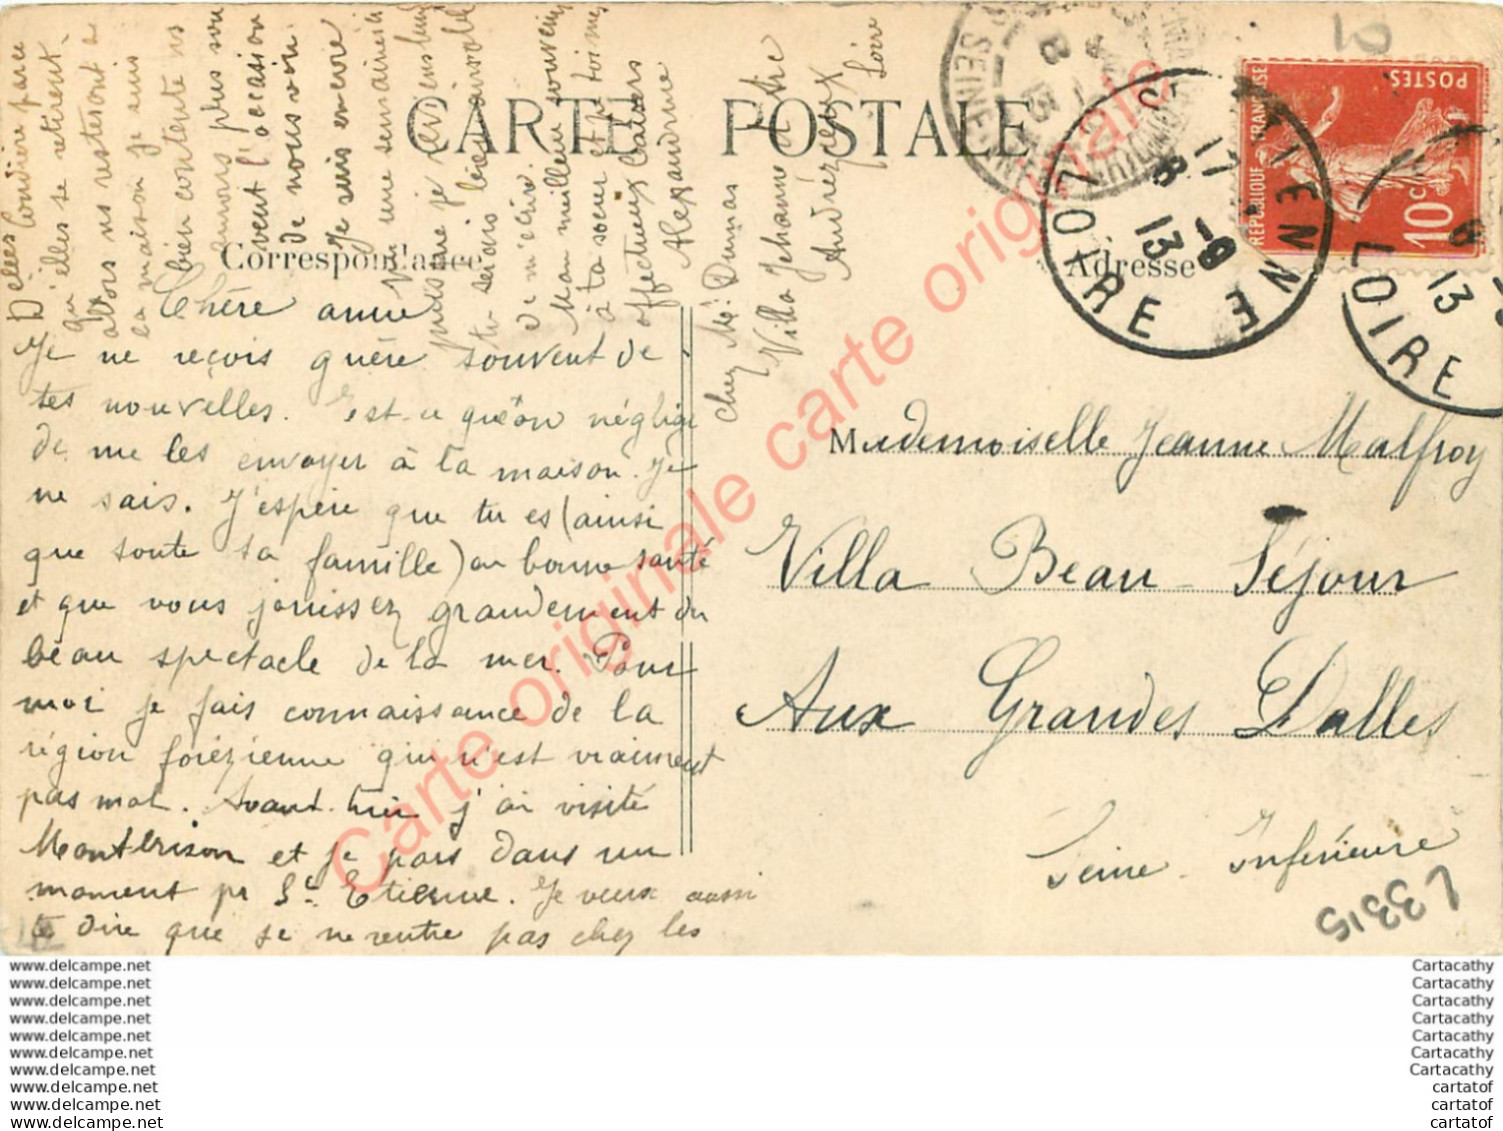 CARTE POSTALE
Correspondance
Adresse
Chère amie
Je ne reçois guère souvent de
tes nouvelles. Est-ce qu'on néglige
de me les envoyer à la maison. Je
ne sais. J'espère que tu es (ainsi
que toute ta famille) en bonne santé
et que vous jouissez grandement du
beau spectacle de la mer. Pour
moi je fais connaissance de la
région forézienne qui n'est vraiment
pas mal. Avant-hier j'ai visité
Montbrison et je pars dans un
moment pr St Etienne. Je veux aussi
te dire que je ne rentre pas chez les
Delles Condière parce
qu'elles se retirent
alors ns resterons à
la maison je suis
bien contente ns
aurons plus sou
vent l'occasion
de nous voir.
Je suis encore
pr une semaine ici
puis je reviens
tu serais bien aimable
de m'écrire.
Mon meilleur souvenir
à ta soeur et pr toi mes
affectueux baisers
Alexandrine
chez Mr Dumas
Villa Jehanne d'Arc
Andrézieux
Loire
Mademoiselle Jeanne Malfroy
Villa Beau-Séjour
Aux Grandes Dalles
Seine-Inférieure
L3315
REPUBLIQUE FRANÇAISE
POSTES
10c
ST ETIENNE
17
8-9
13
LOIRE
LOIRE
13
SEINE-INF
Carte originale carte originale
www.delcampe.net
www.delcampe.net
www.delcampe.net
www.delcampe.net
www.delcampe.net
www.delcampe.net
www.delcampe.net
www.delcampe.net
www.delcampe.net
www.delcampe.net
Cartacathy
Cartacathy
Cartacathy
Cartacathy
Cartacathy
Cartacathy
Cartacathy
cartatof
cartatof
cartatof